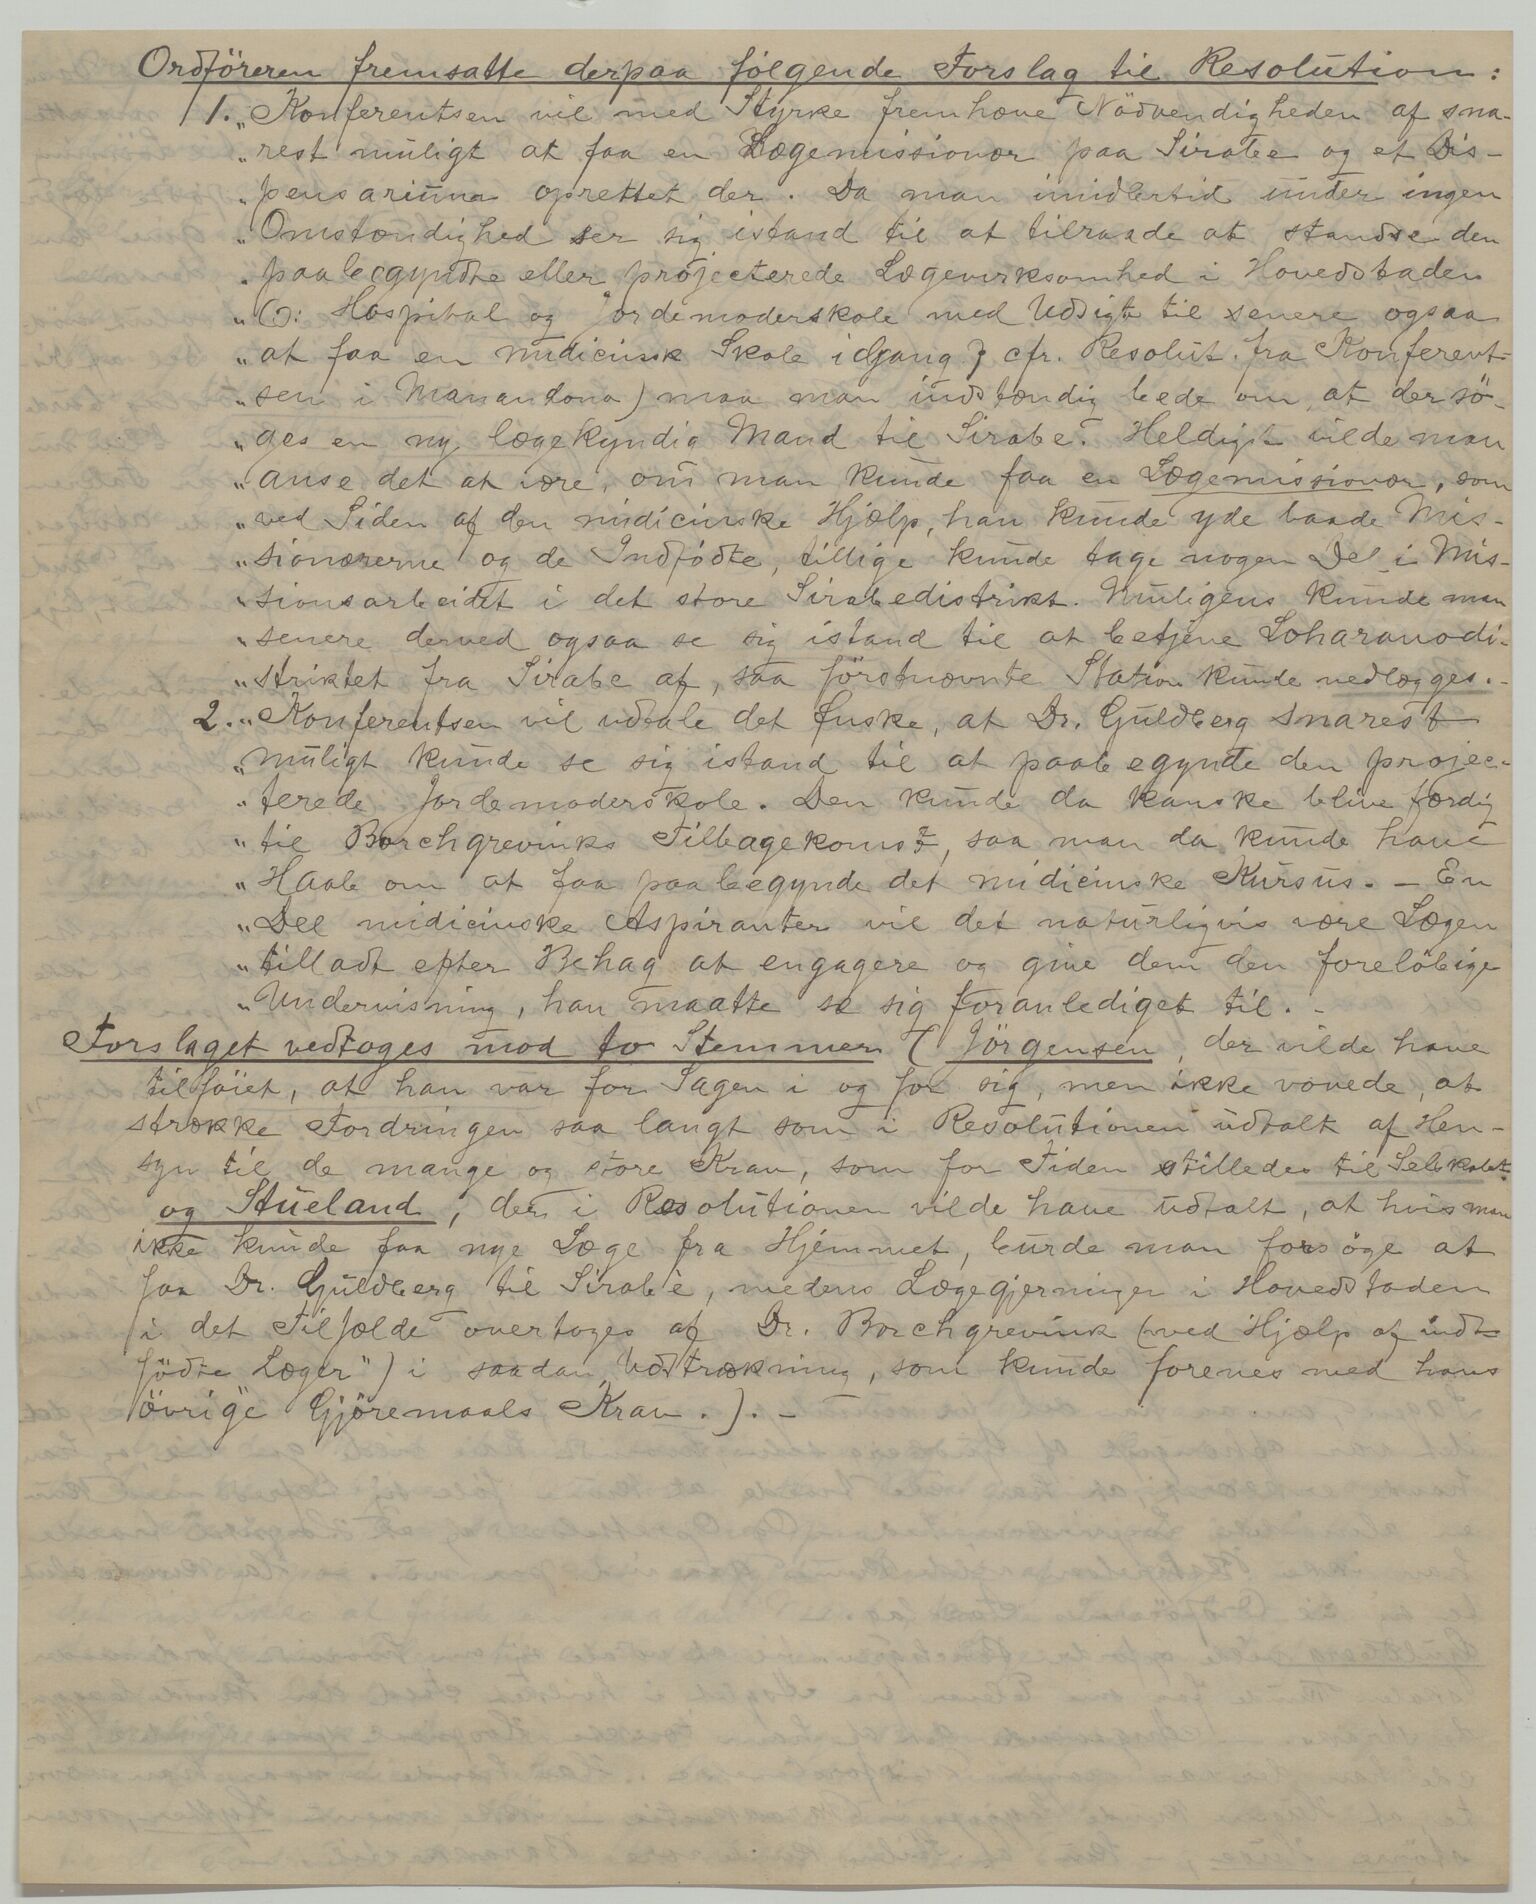 Ordföreren fremsatte derpaa følgende Forslag til Resolution:
1. „Konferentsen vil med Styrke fremhæve Nödvendigheden af sna-
„rest muligt at faa en Lægemissionær paa Sirabe og et Dis-
„pensarium oprettet der. Da man imidlertid under ingen
„Omstændighed ser sig istand til at tilraade at standse den
„paabegyndte eller projecterede Lægevirksomhed i Hovedstaden
„(ɔ: Hospital og Jordemoderskole med Udsigt til senere ogsaa
„at faa en midicinsk Skole i Gang; cfr. Resolut. fra Konferent-
„sen i Manandona) maa man indstændig bede om, at der sö-
„ges en ny lægekyndig Mand til Sirabe. Heldigst vilde man
„anse det at være, om man kunde faa en Lægemissionær, som
„ved Siden af den midicinske Hjælp, han kunde yde baade Mis-
„sionærerne og de Indfødte, tillige kunde tage nogen Del i Mis-
„sionsarbeidet i det store Sirabedistrikt. Muligens kunde man
„senere derved ogsaa se sig istand til at betjene Loharanodi-
„striktet fra Sirabe af, saa förstnævnte Station kunde nedlægges.-
2. „Konferentsen vil udtale det Ønske, at Dr. Guldberg snarest
„muligt kunde se sig istand til at paabegynde den projec-
„terede Jordemoderskole. Den kunde da kanske blive færdig
„til Borchgrevinks Tilbagekomst, saa man da kunde have
„Haab om at faa paabegynde det midicinske Kursus. - En
„Del midicinske Aspiranter vil det naturligvis være Lægen
„tilladt efter Behag at engagere og give dem den foreløbige
„Undervisning, han maatte se sig foranlediget til. -
Forslaget vedtoges mod to Stemmer (Jörgensen, der vilde have
tilføiet, at han var for Sagen i og for sig, men ikke vovede, at
strække Fordringen saa langt som i Resolutionen udtalt af Hen-
syn til de mange og store Krav, som for Tiden stilledes til Selskabet
og Stueland, der i Resolutionen vilde have udtalt, at hvis man
ikke kunde faa nye Læge fra Hjemmet, burde man forsöge at
faa Dr. Guldberg til Sirabe, medens Lægegjerningen i Hovedstaden
i det Tilfælde overtoges af Dr. Borchgrevink (ved Hjælp af indf-
födte Læger") i saadan Udstrækning, som kunde forenes med hans
övrige Gjöremaals Krav.). -